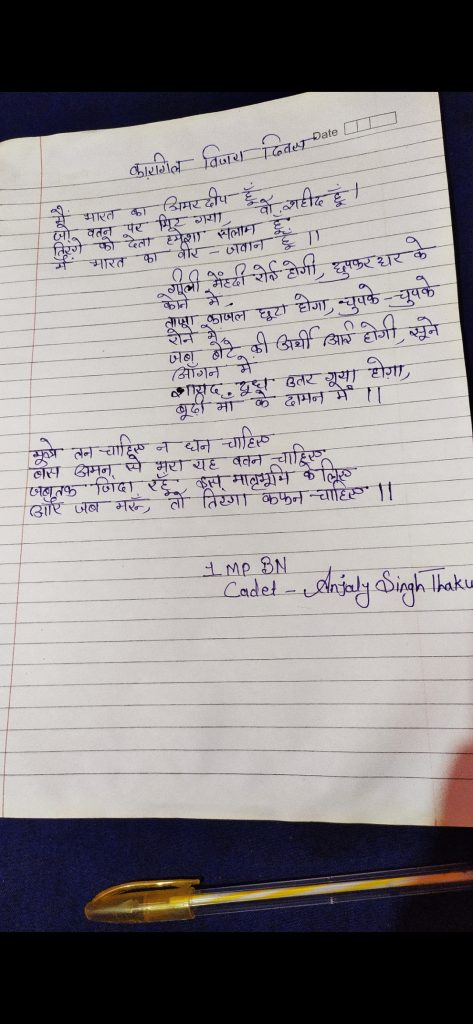 Date
कारगिल विजय दिवस
मैं भारत का अमर दीप हूँ
जो वतन पर मिट गया वो शहीद हूँ।
तिरंगे को देता हमेशा सलाम हूँ
मैं भारत का वीर - जवान हूँ ।।
गीली मेंहदी रोई होगी, छुपकर घर के
कोने में,
ताजा काजल छूटा होगा, चुपके - चुपके
रोने में,
जब बेटे की अर्थी आई होगी, सूने
आँगन में
शायद दूध उतर गया होगा,
बूढ़ी माँ के दामन में ।।
मुझे तन चाहिए न धन चाहिए
बस अमन से भरा यह वतन चाहिए
जबतक जिंदा रहूँ इस मातृभूमि के लिए
और जब मरूँ, तो तिरंगा कफन चाहिए ।।
1 MP BN
Cadet - Anjaly Singh Thaku